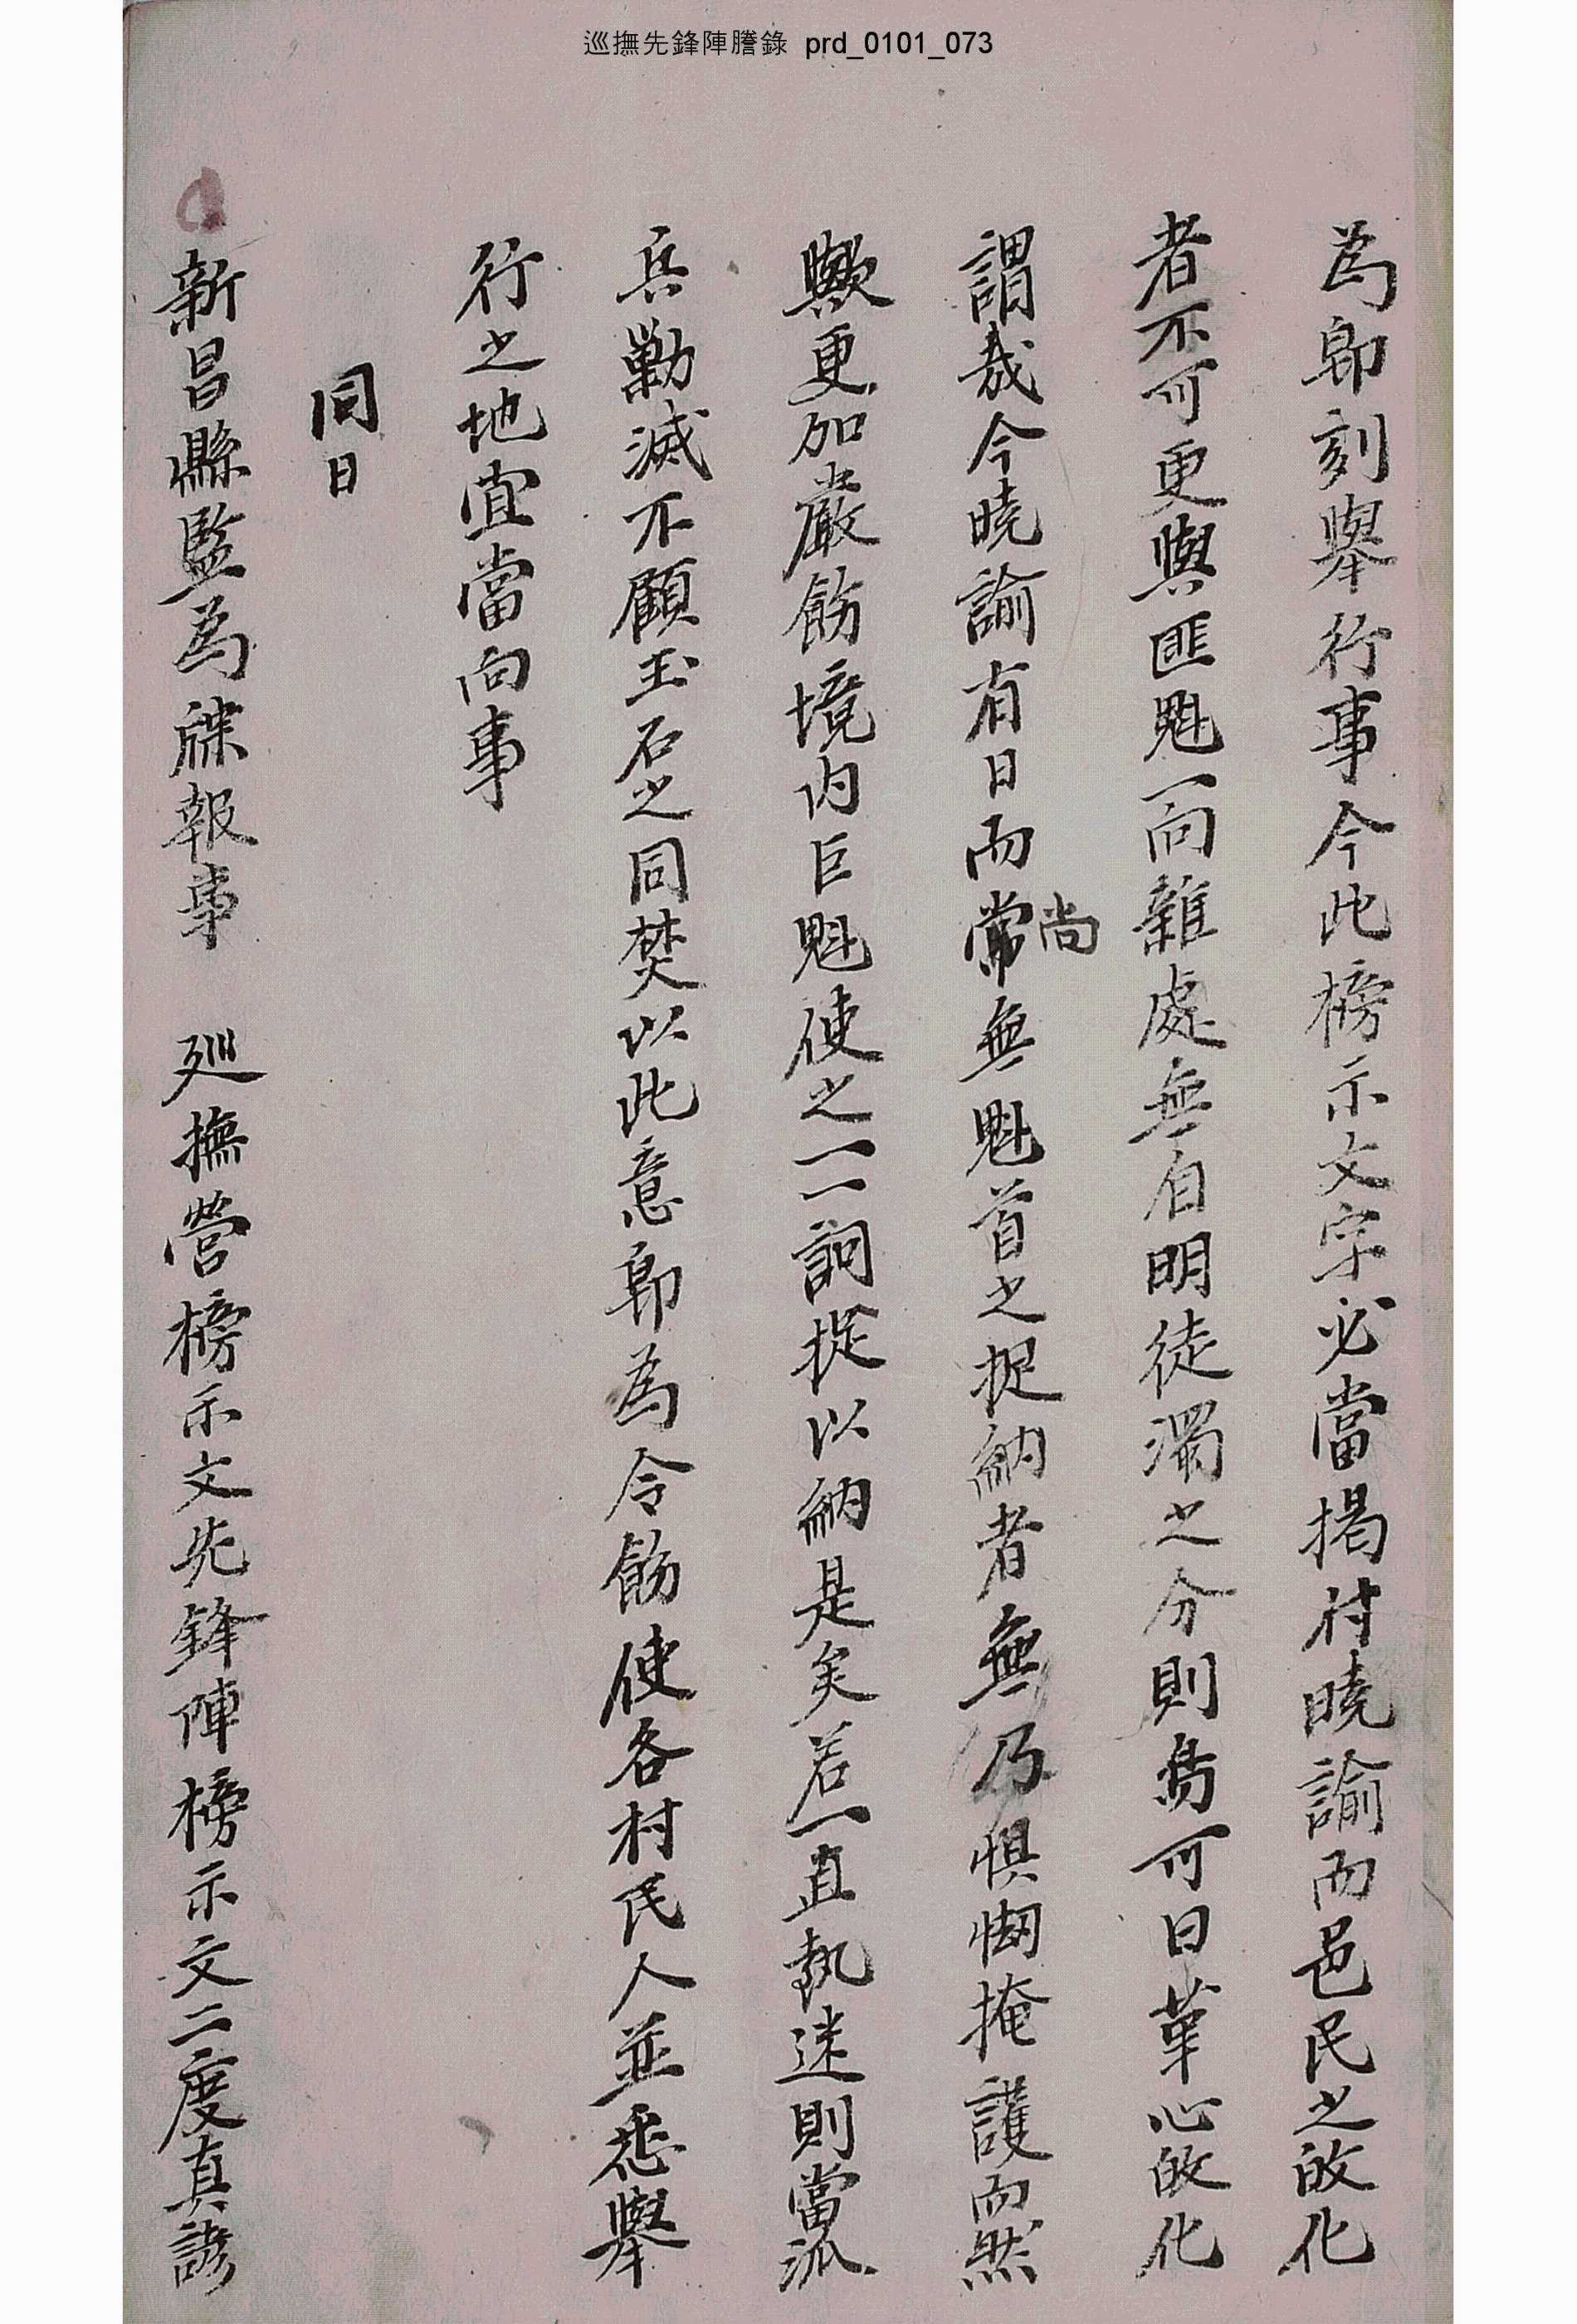 巡撫先鋒陣謄錄 prd_0101_073
為卽刻擧行事今此榜示文字必當揭付曉諭而邑民之改化
者不可更與匪魁一向雜處無自明徒濁之分則焉可曰革心改化
謂哉今曉諭有日而常尚無魁首之捉納者無乃惧惘掩護而然
歟更加嚴飭境內巨魁使之一一詗捉以納是矣若一直執迷則當派
兵勦滅不顧玉石之同焚以此意卽為令飭使各村民人並悉擧
行之地宜當向事
同日
新昌縣監為牒報事 廵撫營榜示文先鋒陣榜示文二度真諺